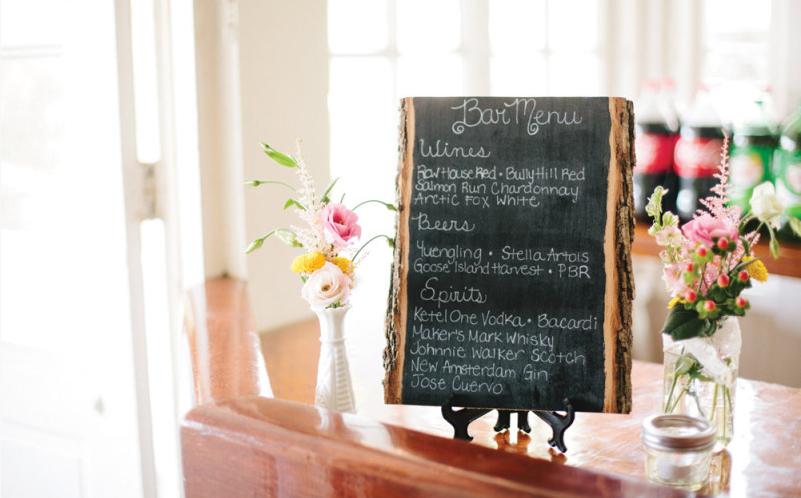 Bar Menu
Wines
Raw House Red • Bully Hill Red
Salmon Run Chardonnay
Arctic Fox White
Beers
Yuengling • Stella Artois
Goose Island Harvest • PBR
Spirits
Ketel One Vodka • Bacardi
Maker's Mark Whisky
Johnnie Walker Scotch
New Amsterdam Gin
Jose Cuervo